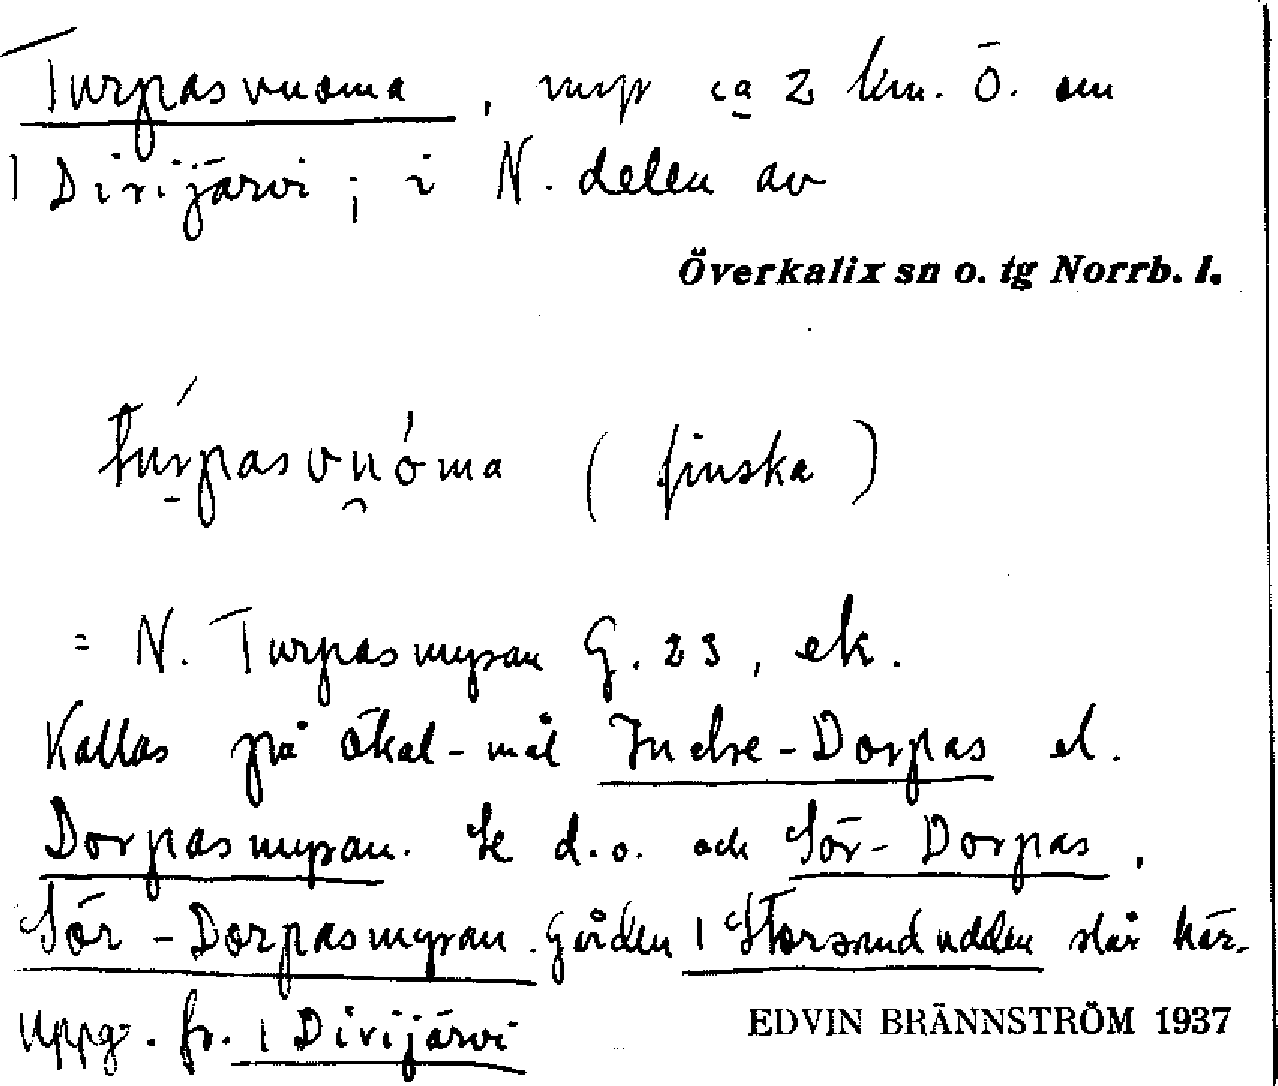 Turpasvuoma, myr ca 2 km. Ö. om
| Dirijärvi; i N. delen av
Överkalix sn o. tg Norrb. l.
túrpasvuóma (finska)
= N. Turpasmyran G. 23, ek.
Kallas på ökal-mål Indre-Dorpas el.
Dorpasmyran. Se d.o. och Sör-Dorpas,
Sör-Dorpasmyran. Gården | Storsandudden slår här.
Uppg. fr. | Dirijärvi
EDVIN BRÄNNSTRÖM 1937